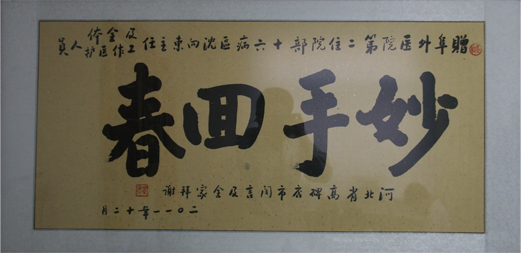 赠阜外医院第二住院部十六病区沈向东主任及全体
工作医护人员
妙手回春
河北省高碑店市闫言及全家拜谢
二〇一一年十二月